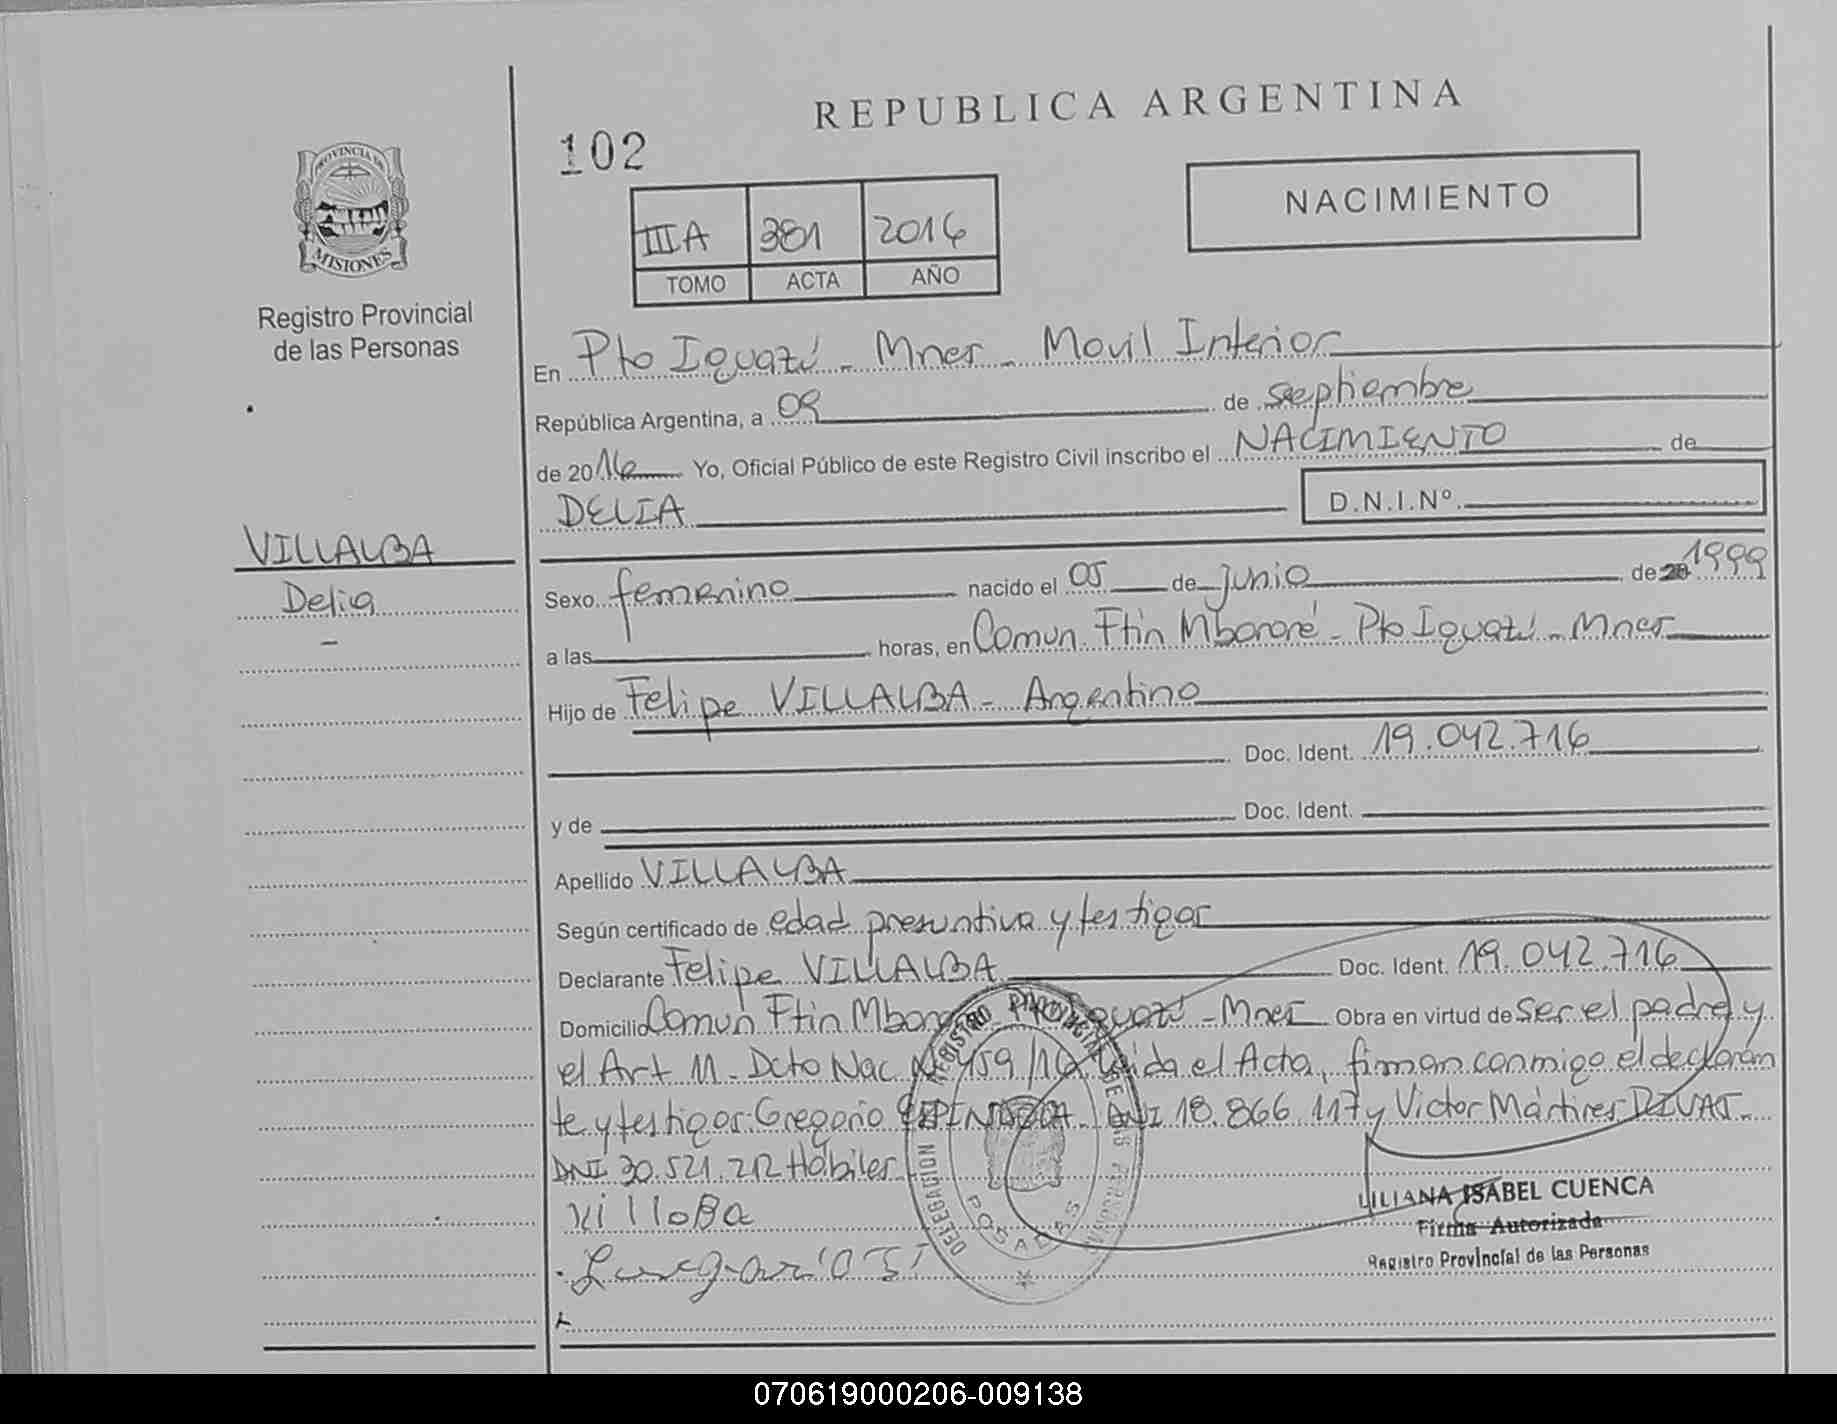 REPUBLICA ARGENTINA
102
NACIMIENTO
IIIA 381 2016
TOMO ACTA AÑO
PROVINCIA DE
MISIONES
Registro Provincial
de las Personas
En Pto Iguazú - Mnes - Movil Interior
República Argentina, a 09 de septiembre
de 2016 Yo, Oficial Público de este Registro Civil inscribo el NACIMIENTO de
DELIA D.N.I.Nº.
VILLALBA
Delia
-
Sexo femenino nacido el 05 de junio de 20 1999
a las horas, en Comun. Ftin Mbororé - Pto Iguazú - Mnes
Hijo de Felipe VILLALBA - Argentino
Doc. Ident. 19.042.716
y de Doc. Ident.
Apellido VILLALBA
Según certificado de edad presuntiva y testigos
Declarante Felipe VILLALBA Doc. Ident. 19.042.716
Domicilio Comun Ftin Mbororé Pto Iguazú - Mnes Obra en virtud de ser el padre y
el Art 11 - Dcto Nac Nº 459/10 Leida el Acta, firman conmigo el declaran
te y testigos: Gregorio ESPINDOLA DNI 18.866.117 y Victor Mártires DIVAS -
DNI 30.521.212 Hábiles
Villaba
REGISTRO PROVINCIAL DE LAS PERSONAS
DELEGACION
POSADAS
LILIANA ISABEL CUENCA
Firma Autorizada
Registro Provincial de las Personas
070619000206-009138